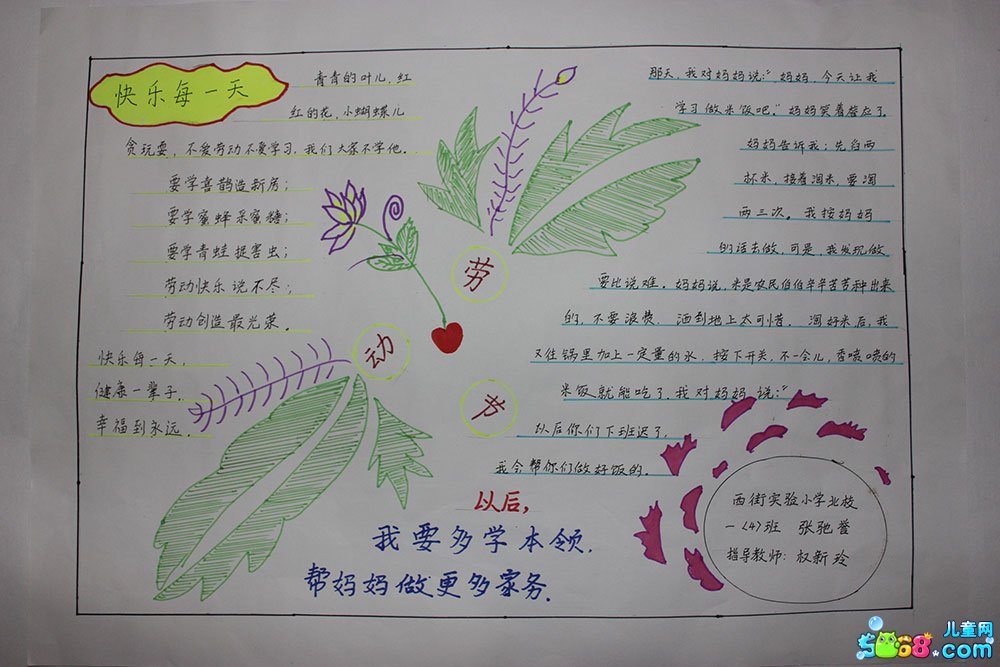 快乐每一天
青青的叶儿,红
红的花,小蝴蝶儿
贪玩耍,不爱劳动不爱学习,我们大家不学他。
要学喜鹊造新房;
要学蜜蜂采蜜糖;
要学青蛙捉害虫;
劳动快乐说不尽;
劳动创造最光荣。
快乐每一天.
健康一辈子.
幸福到永远.
劳
动
节
那天,我对妈妈说:“妈妈,今天让我
学习做米饭吧。”妈妈笑着答应了。
妈妈告诉我:先舀两
杯米,接着淘米,要淘
两三次。我按妈妈
的话去做,可是,我发现做
要比说难。妈妈说,米是农民伯伯辛辛苦苦种出来
的,不要浪费,洒到地上太可惜。淘好米后,我
又往锅里加上一定量的水,按下开关,不一会儿,香喷喷的
米饭就能吃了,我对妈妈说:“
以后你们下班迟了,
我会帮你们做好饭的.
以后,
我要多学本领,
帮妈妈做更多家务.
西街实验小学北校
一〈4〉班 张驰誉
指导教师:权新玲
儿童网
5068.com